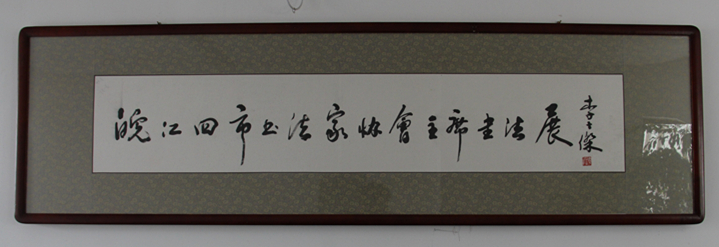 皖江四市书法家协會主席書法展
李士傑